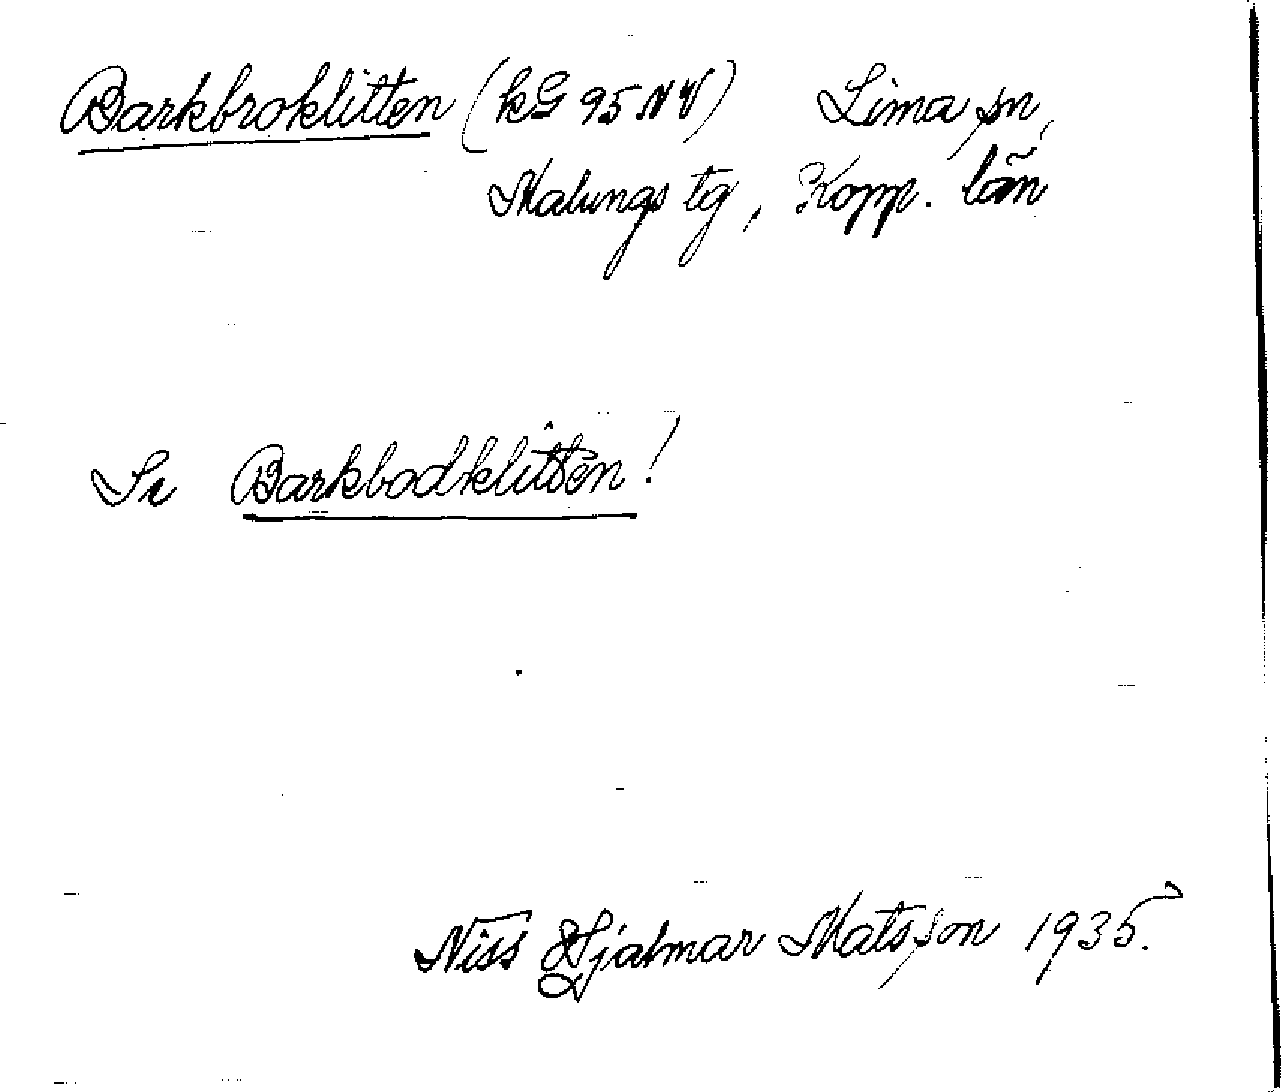 Barkbroklitten (kG 95 NV) Lima sn,
Malungs tg, Kopp. län
Se Barkbodklitten!
Niss Hjalmar Matsson 1935.